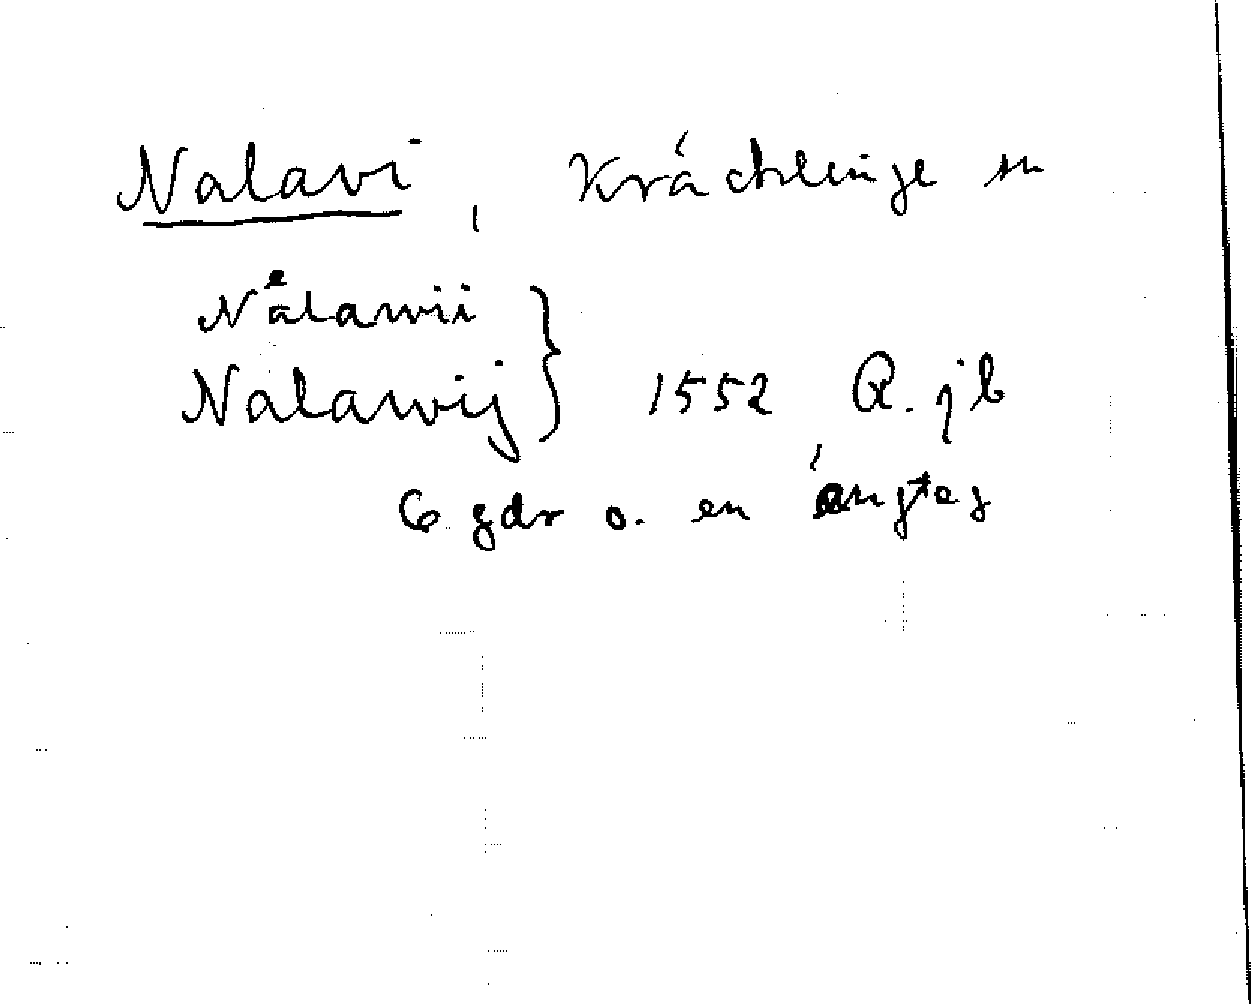 Nalavi, Kräcklinge sn
Nålawii
Nalawij } 1552 R. jb
6 gdr o. en ängteg